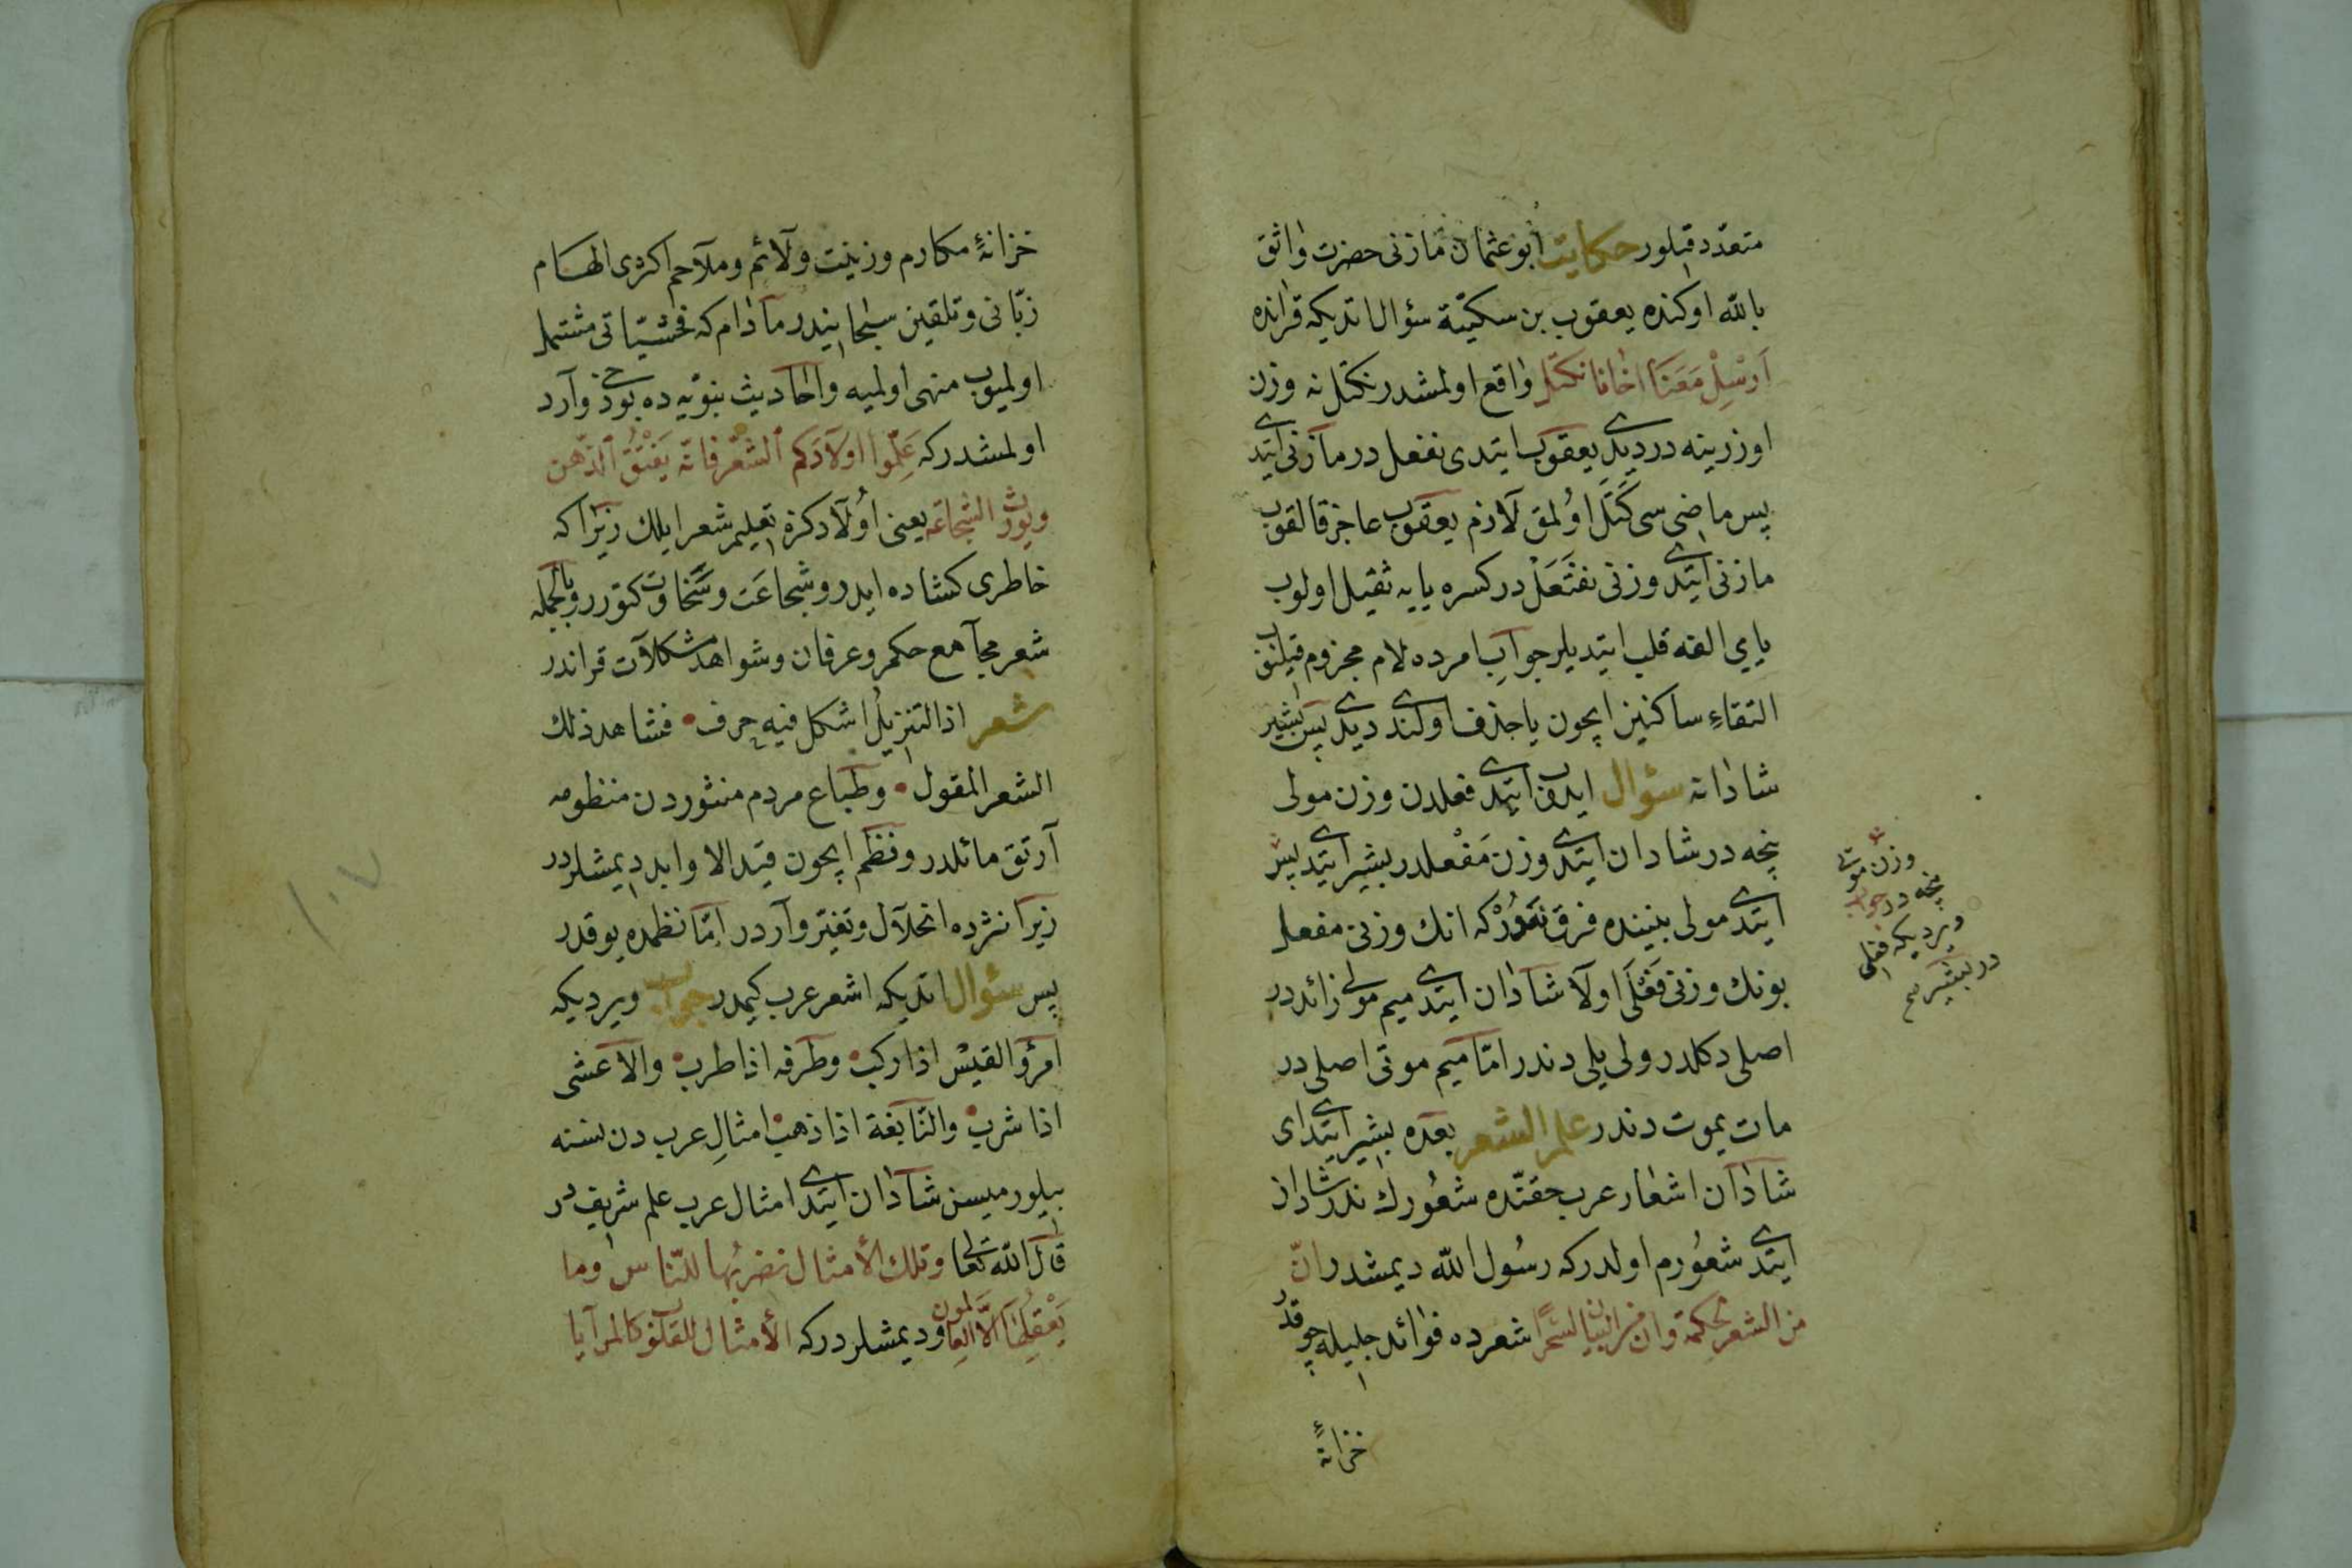 متعدد قیلور حکایت ابو عثمان مازنی حضرت واثق
بالله اوکنده یعقوب بن سکیتة سؤال اتدیکه قرانده
اَرْسِلْ مَعَنَا اخانا نکتل واقع اولمشدر نکتل نه وزن
اوزرینه در دیدی یعقوب ایتدی نفعل در مازنی ایتدی
پس ماضی سی کَتَلَ اوُلمق لازم یعقوب عاجز قالقوب
مازنی ایتدی وزنی نفتَعَلْ در کسره یایه ثقیل اولوب
یایی الفه قلب ایتدیلر جوابِ امرده لام مجزوم قیلنوب
التقاءِ ساکنین ایچون یا حذف اولندی دیدی پس بشیر
شادانه سؤال ایدوب ایتدی فعلدن وزن مولی
نیجه در شادان ایتدی وزن مَفْعلدر بشیر ایتدی بشیر
ایتدی مولی بیننده فرق نَه وُرْکه انك وزنی مفعل
بونك وزنی فَعْلَی اولا شادان ایتدی میم مولی زائد در
اصلی دکلدر ولی یلی دندر امّا میم موتی اصلی در
مات یموت دندر علم الشعر بعده بشیر ایتدی ای
شادان اشعار عرب حقنّده شعُورك ندر شادان
ایتدی شعوُرم اولدرکه رسُول الله دیمشدر انّ
من الشعر لحکمة وان من البیان لسحرًا شعرده فوائد جلیله چوقدر
خزانهٔ
وزن موتی
نیجه در جواب
ویردیکه فعلی
در بشیر
خزانهٔ مکارم وزینت ولائم وملاحم اکردی الهام
ربّانی وتلقین سبحانیندر مادام که فحشیّاتی مشتمل
اولمیوب منهی اولمیه واحادیث نبوّیه ده بوذخی وارد
اولمشدرکه عَلِّموا اولادَکم الشعر فانّه یَفْتُقُ الذّهن
ویورث الشجاعه یعنی اوُلادکزه تعلیم شعر ایلك زیرا که
خاطری کشاده ایدر وشجاعَت وسَخاوت کتورر وبالجمله
شعر مجامع حکم وعرفان وشواهد مشکلات قراندر
شعر اذا التنزیلُ اشکل فیه حرف • فشاهد ذلك
الشعر المقول • وطباع مردم منثوردن منظومه
آرتق مائلدر ونظم ایچون قید الاوابد دیمشلردر
زیرا نثرده انحلال وتغیّر واردر امّا نظمده یوقدر
پس سؤال اتدیکه اشعر عرب کیمدر جواب ویردیکه
امرؤ القیس اذا رکب وطرفه اذا طرب والاعشی
اذا شرب والنابغة اذا ذهب امثالِ عرب دن نسنه
بیلورمیسن شادان ایتدی امثال عرب علم شریف در
قال الله تعالی وتلك الأمثال نضربُها للنّاس وما
یَعْقِلُهَا الاَّ العالمون ودیمشلردرکه الأمثال للقلوب کالمرایا